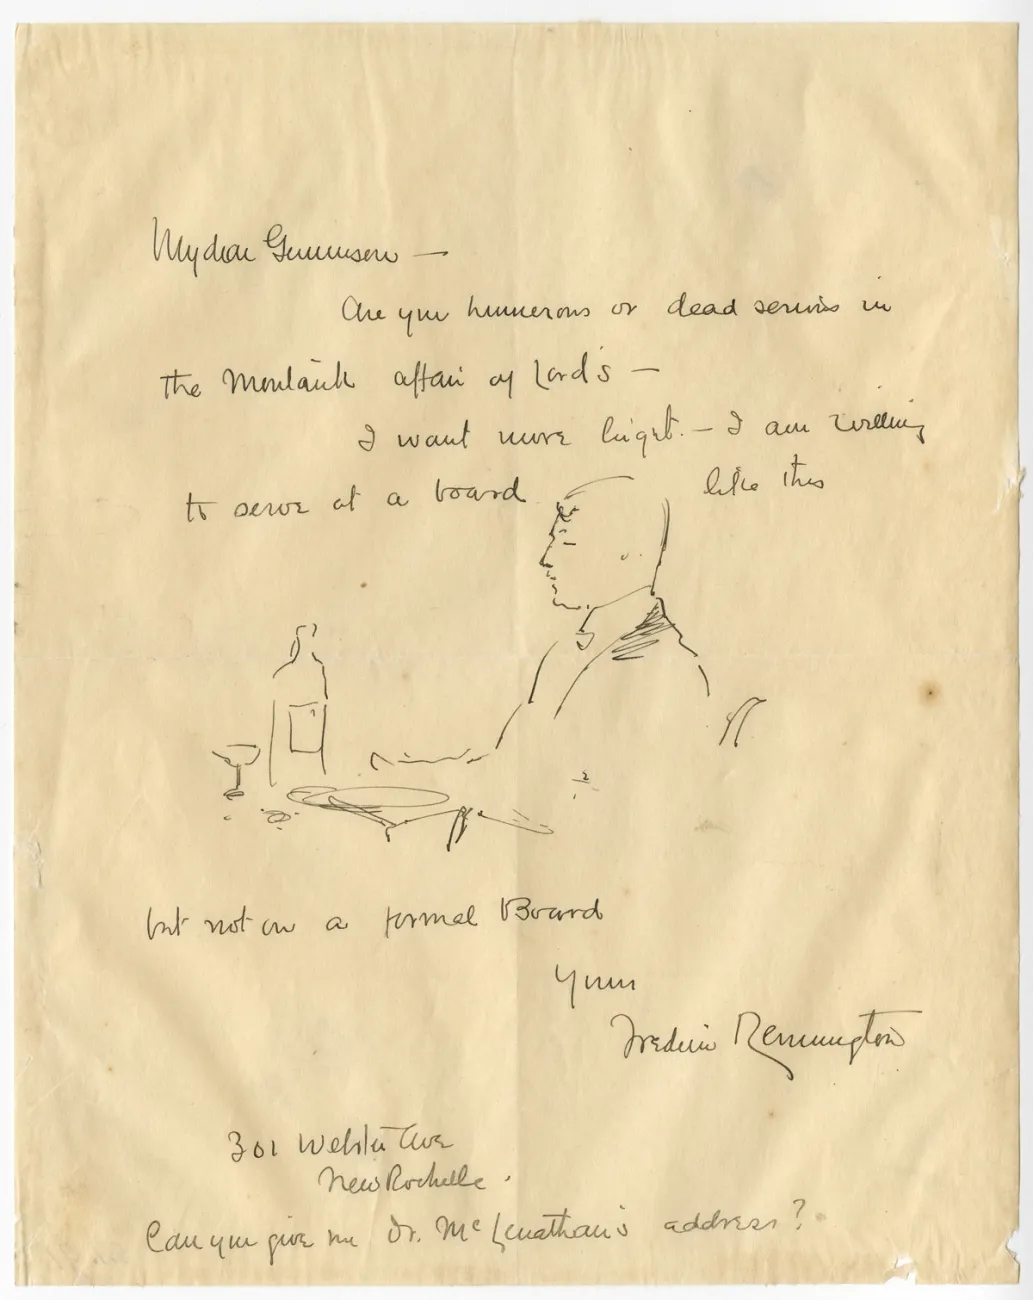 My dear Gunnison —
Are you humerous or dead serious in
the Montauk affair of Lord's —
I want more light. — I am willing
to serve at a board like this
but not on a formal Board
Yours
Frederic Remington
301 Webster Ave
New Rochelle.
Can you give me Dr. McLenathan's address?